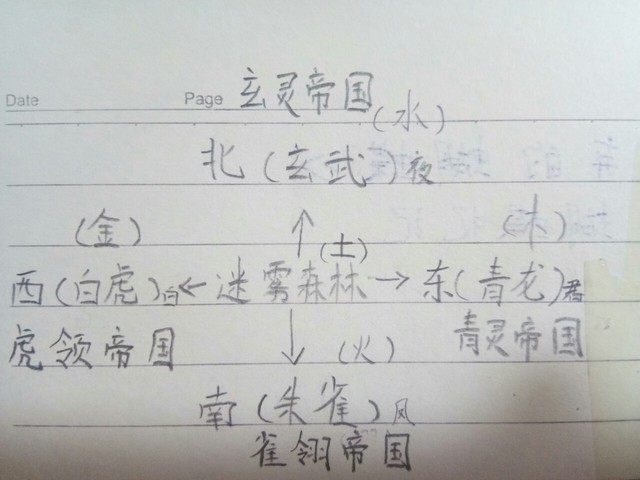 Date Page 玄灵帝国
(水)
北(玄武)夜
(金) (木)
(土)
西(白虎)白←迷雾森林→东(青龙)君
虎领帝国 (火) 青灵帝国
南(朱雀)风
雀翎帝国